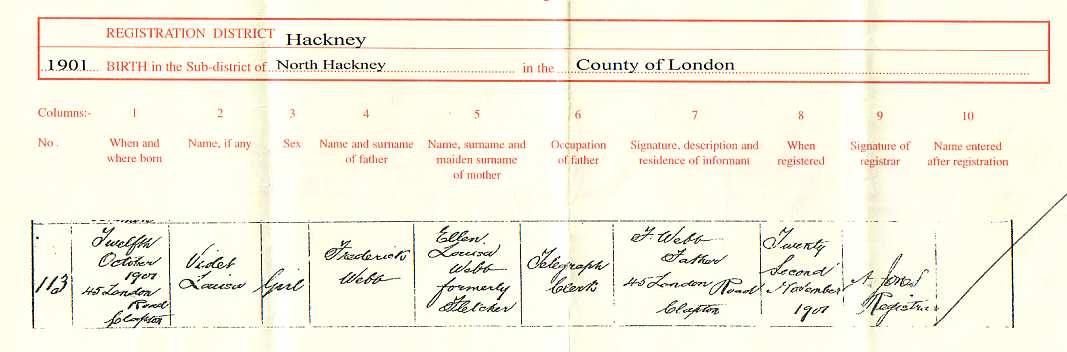 REGISTRATION DISTRICT Hackney
1901 BIRTH in the Sub-district of North Hackney in the County of London
Columns:- 1 2 3 4 5 6 7 8 9 10
No. When and where born Name, if any Sex Name and surname of father Name, surname and maiden surname of mother Occupation of father Signature, description and residence of informant When registered Signature of registrar Name entered after registration
113
Twelfth
October
1901
45 London
Road
Clapton
Violet
Louisa
Girl
Frederick
Webb
Ellen
Louisa
Webb
formerly
Fletcher
Telegraph
Clerk
F. Webb
Father
45 London Road
Clapton
Twenty
Second
November
1901
A. Jones
Registrar